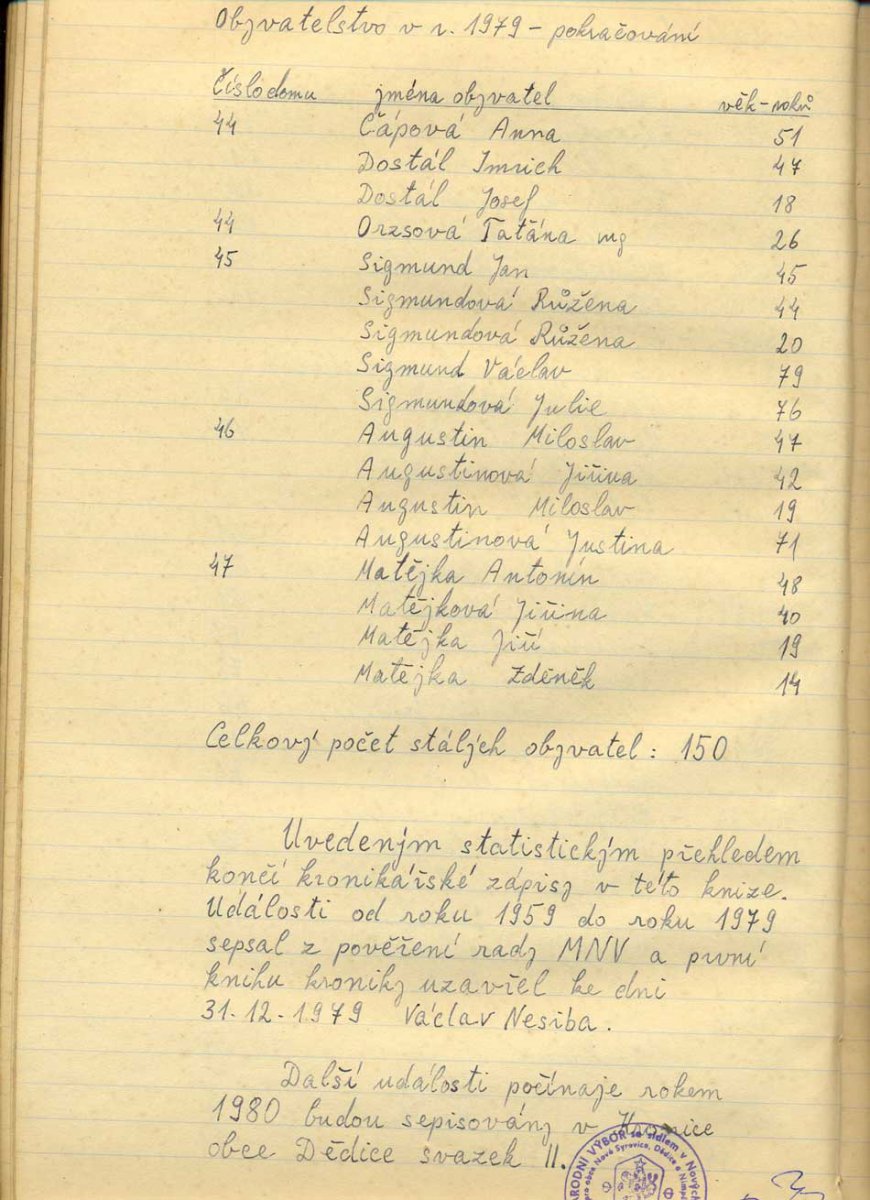 Obyvatelstvo v r. 1979 - pokračování
Číslo domu jména obyvatel věk - roků
44 Čápová Anna 51
Dostál Imrich 47
Dostál Josef 18
44 Orzsová Taťána mg 26
45 Sigmund Jan 45
Sigmundová Růžena 44
Sigmundová Růžena 20
Sigmund Václav 79
Sigmundová Julie 76
46 Augustin Miloslav 47
Augustinová Jiřina 42
Augustin Miloslav 19
Augustinová Justina 71
47 Matějka Antonín 48
Matějková Jiřina 40
Matějka Jiří 19
Matějka Zděněk 14
Celkový počet stálých obyvatel : 150
Uvedeným statistickým přehledem
končí kronikářské zápisy v této knize.
Události od roku 1959 do roku 1979
sepsal z pověření rady MNV a první
knihu kroniky uzavřel ke dni
31. 12. 1979 Václav Nesiba.
Další události počínaje rokem
1980 budou sepisovány v Kronice
obce Dědice svazek II.
NÁRODNÍ VÝBOR se sídlem v Nových
pro obce Nové Syrovice, Dědice a